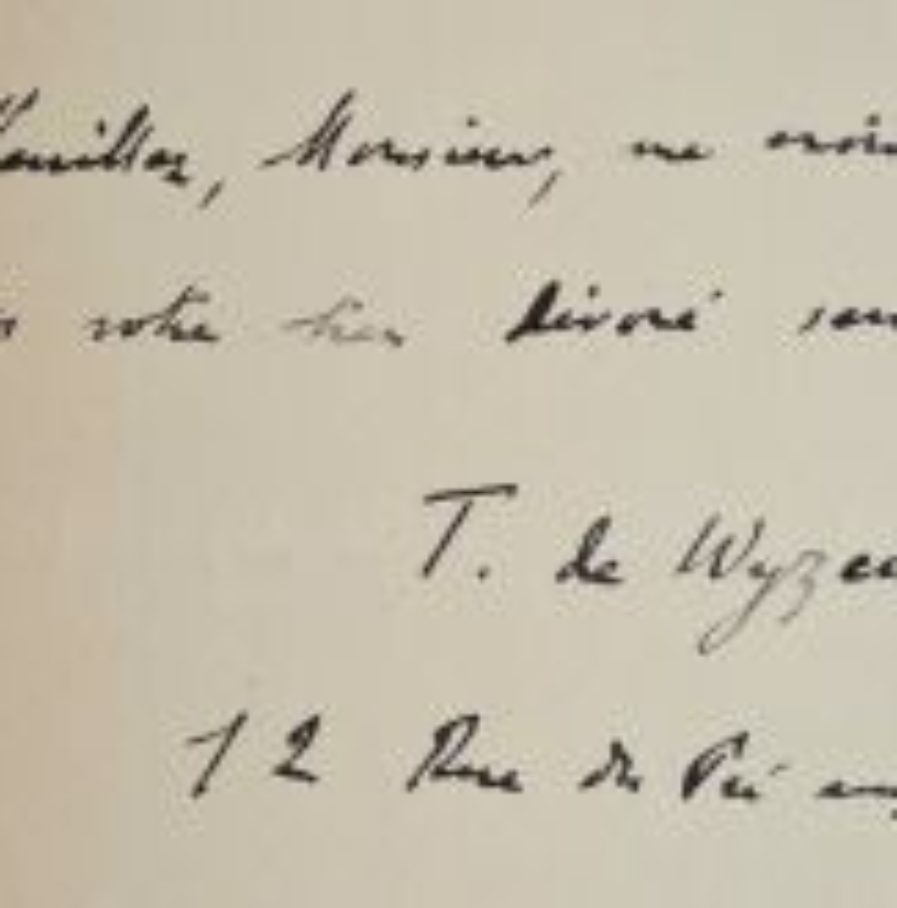 Veuillez, Monsieur, me croire
votre bien dévoué
T. de Wyze
12 Rue du Pré